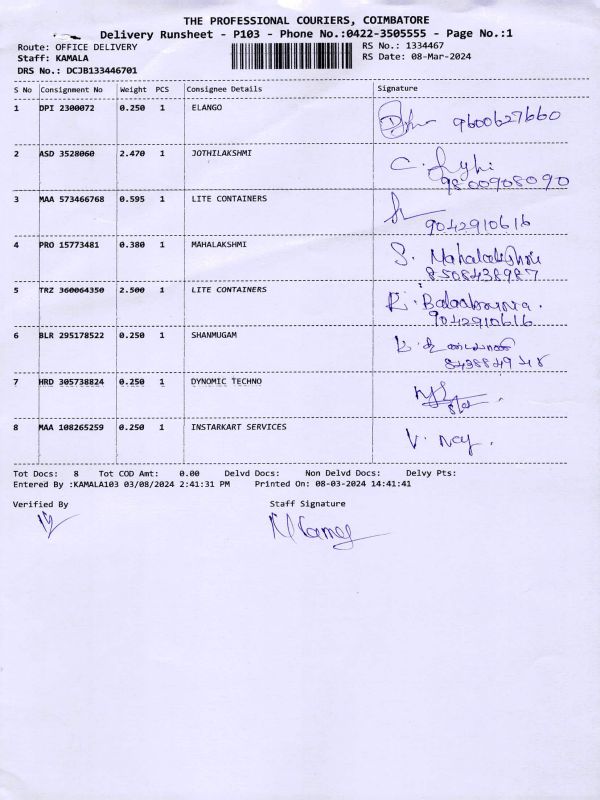 THE PROFESSIONAL COURIERS, COIMBATORE
Delivery Runsheet - P103 - Phone No.:0422-3505555 - Page No.:1
Route: OFFICE DELIVERY RS No.: 1334467
Staff: KAMALA RS Date: 08-Mar-2024
DRS No.: DCJB133446701
S No Consignment No Weight PCS Consignee Details Signature
1 DPI 2300072 0.250 1 ELANGO 9600627660
2 ASD 3528060 2.470 1 JOTHILAKSHMI C.
9800908090
3 MAA 573466768 0.595 1 LITE CONTAINERS
9042910616
4 PRO 15773481 0.380 1 MAHALAKSHMI S. Mahalakshmi
8508438987
5 TRZ 360064350 2.500 1 LITE CONTAINERS R.
9042910616
6 BLR 295178522 0.250 1 SHANMUGAM
7 HRD 305738824 0.250 1 DYNOMIC TECHNO
8 MAA 108265259 0.250 1 INSTARKART SERVICES V.
Tot Docs: 8 Tot COD Amt: 0.00 Delvd Docs: Non Delvd Docs: Delvy Pts:
Entered By :KAMALA103 03/08/2024 2:41:31 PM Printed On: 08-03-2024 14:41:41
Verified By Staff Signature